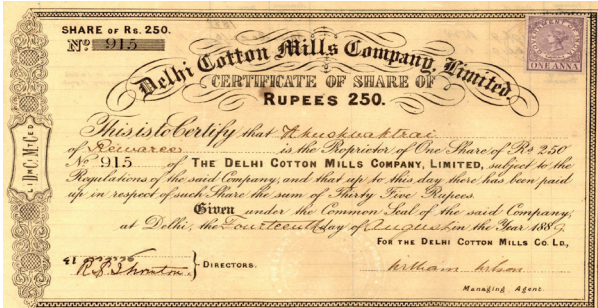 SHARE OF RS. 250.
No. 915
Delhi Cotton Mills Company, Limited
CERTIFICATE OF SHARE OF
RUPEES 250.
ONE ANNA
This is to Certify that Khushwaktrai
of Rewaree is the Proprietor of One Share of Rs 250
No 915 of THE DELHI COTTON MILLS COMPANY, LIMITED, subject to the
Regulations of the said Company, and that up to this day there has been paid
up in respect of such Share the sum of Thirty Five Rupees.
Given under the Common Seal of the said Company,
at Delhi, the Fourteenth day of August in the Year 1889.
FOR THE DELHI COTTON MILLS CO. LD.,
DIRECTORS.
Managing Agent.